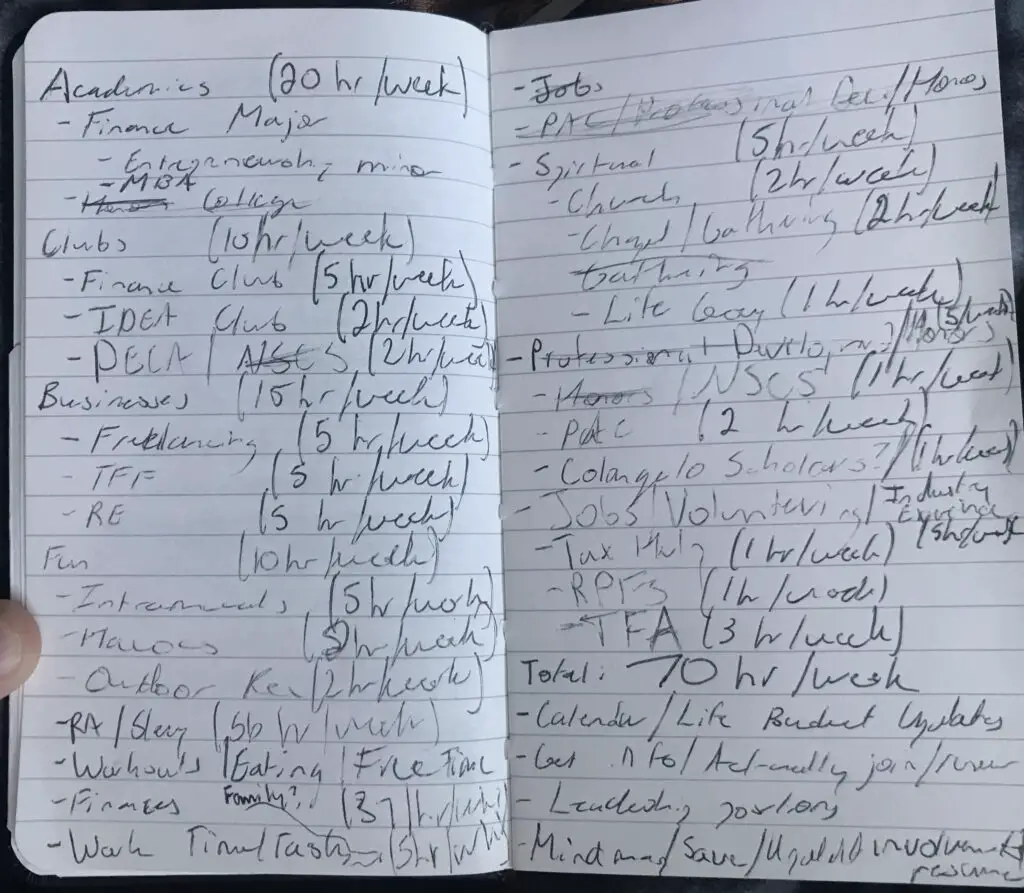 Academics (20 hr/week)
- Finance Major
- Entrepreneurship minor
- MBA
- Honors College
Clubs (10hr/week)
- Finance Club (5hr/week)
- IDEA Club (2hr/week)
- DECA / NSCS (2hr/week)
Businesses (15hr/week)
- Freelancing (5 hr/week)
- TFF (5 hr/week)
- RE (5 hr/week)
Fun (10hr/week)
- Intramurals (5hr/week)
- Havocs (2hr/week)
- Outdoor Rec (2hr/week)
- RA/Sleep (56 hr/week)
- Workouts /Eating /Free Time
- Finances Family? (37 hr/week)
- Work Time/Tasks (5hr/week)
- Jobs
- PAC/Professional Dev./Honors
(5hr/week)
- Spiritual
- Church (2hr/week)
- Chapel/Gathering (2hr/week)
Gathering
- Life Group (1hr/week)
- Professional Develop.?/Honors (5/week)
- Honors /NSCS (1hr/week)
- PAC (2 hr/week)
- Colangelo Scholars?/(1hr/week)
- Jobs/Volunteering/Industry Experience (5hr/week)
- Tax Help (1hr/week)
- (1hr/week)
- TFA (3 hr/week)
Total: 70 hr/week
- Calendar/Life Budget Updates
- Get info/Actually join/
- Leadership positions
- Mind map/Save/Update involvement resume